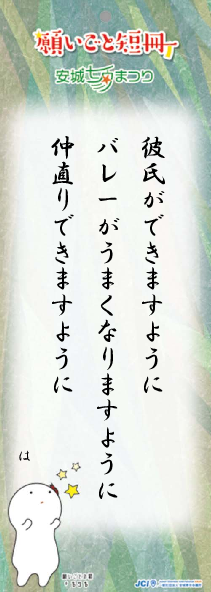 願いごと短冊
安城七夕まつり
彼氏ができますように
バレーがうまくなりますように
仲直りできますように
は
JCI